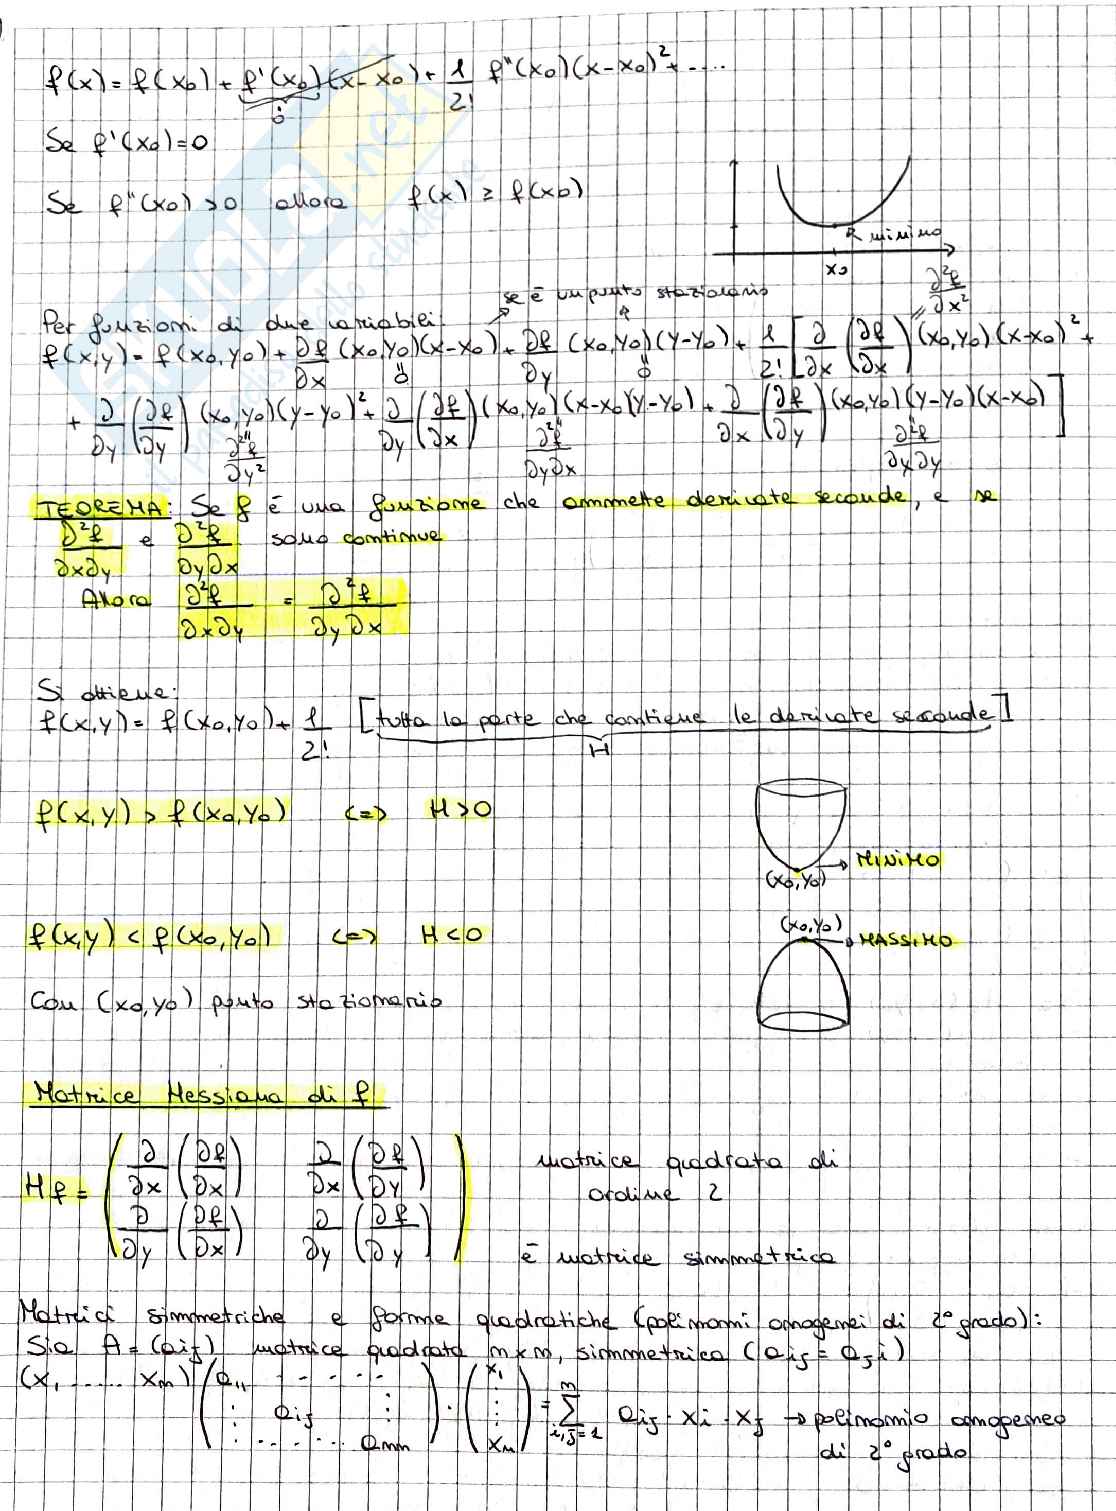 f(x) = f(x₀) + f'(x₀)(x-x₀) + 1/2! f''(x₀)(x-x₀)² + ....
0
Se f'(x₀)=0
Se f''(x₀) >0 allora f(x) ≥ f(x₀)
minimo
x₀
se è un punto stazionario
∂²f/∂x²
Per funzioni di due variabili:
f(x,y) = f(x₀,y₀) + ∂f/∂x (x₀,y₀)(x-x₀) + ∂f/∂y (x₀,y₀)(y-y₀) + 1/2! [∂/∂x (∂f/∂x) (x₀,y₀)(x-x₀)² +
0 0
+ ∂/∂y (∂f/∂y) (x₀,y₀)(y-y₀)² + ∂/∂y (∂f/∂x) (x₀,y₀)(x-x₀)(y-y₀) + ∂/∂x (∂f/∂y) (x₀,y₀)(y-y₀)(x-x₀)]
∂²f/∂y² ∂²f/∂y∂x ∂²f/∂x∂y
TEOREMA: Se f è una funzione che ammette derivate seconde, e se
∂²f/∂x∂y e ∂²f/∂y∂x sono continue
Allora ∂²f/∂x∂y = ∂²f/∂y∂x
Si ottiene:
f(x,y) = f(x₀,y₀) + 1/2! [tutta la parte che contiene le derivate seconde]
H
f(x,y) > f(x₀,y₀) <=> H>0
MINIMO
(x₀,y₀)
(x₀,y₀)
f(x,y) < f(x₀,y₀) <=> H<0
MASSIMO
Con (x₀,y₀) punto stazionario
Matrice Hessiana di f
Hf = (∂/∂x (∂f/∂x) ∂/∂x (∂f/∂y)
∂/∂y (∂f/∂x) ∂/∂y (∂f/∂y))
matrice quadrata di
ordine 2
è matrice simmetrica
Matrici simmetriche e forme quadratiche (polinomi omogenei di 2° grado):
Sia A = (aij) matrice quadrata n×n, simmetrica (aij = aji)
(x₁ ..... xn) (a₁₁ ..... aij ..... ann) · (x₁ ⋮ xn) = Σ i,j=1 n aij · xi · xj → polinomio omogeneo
di 2° grado